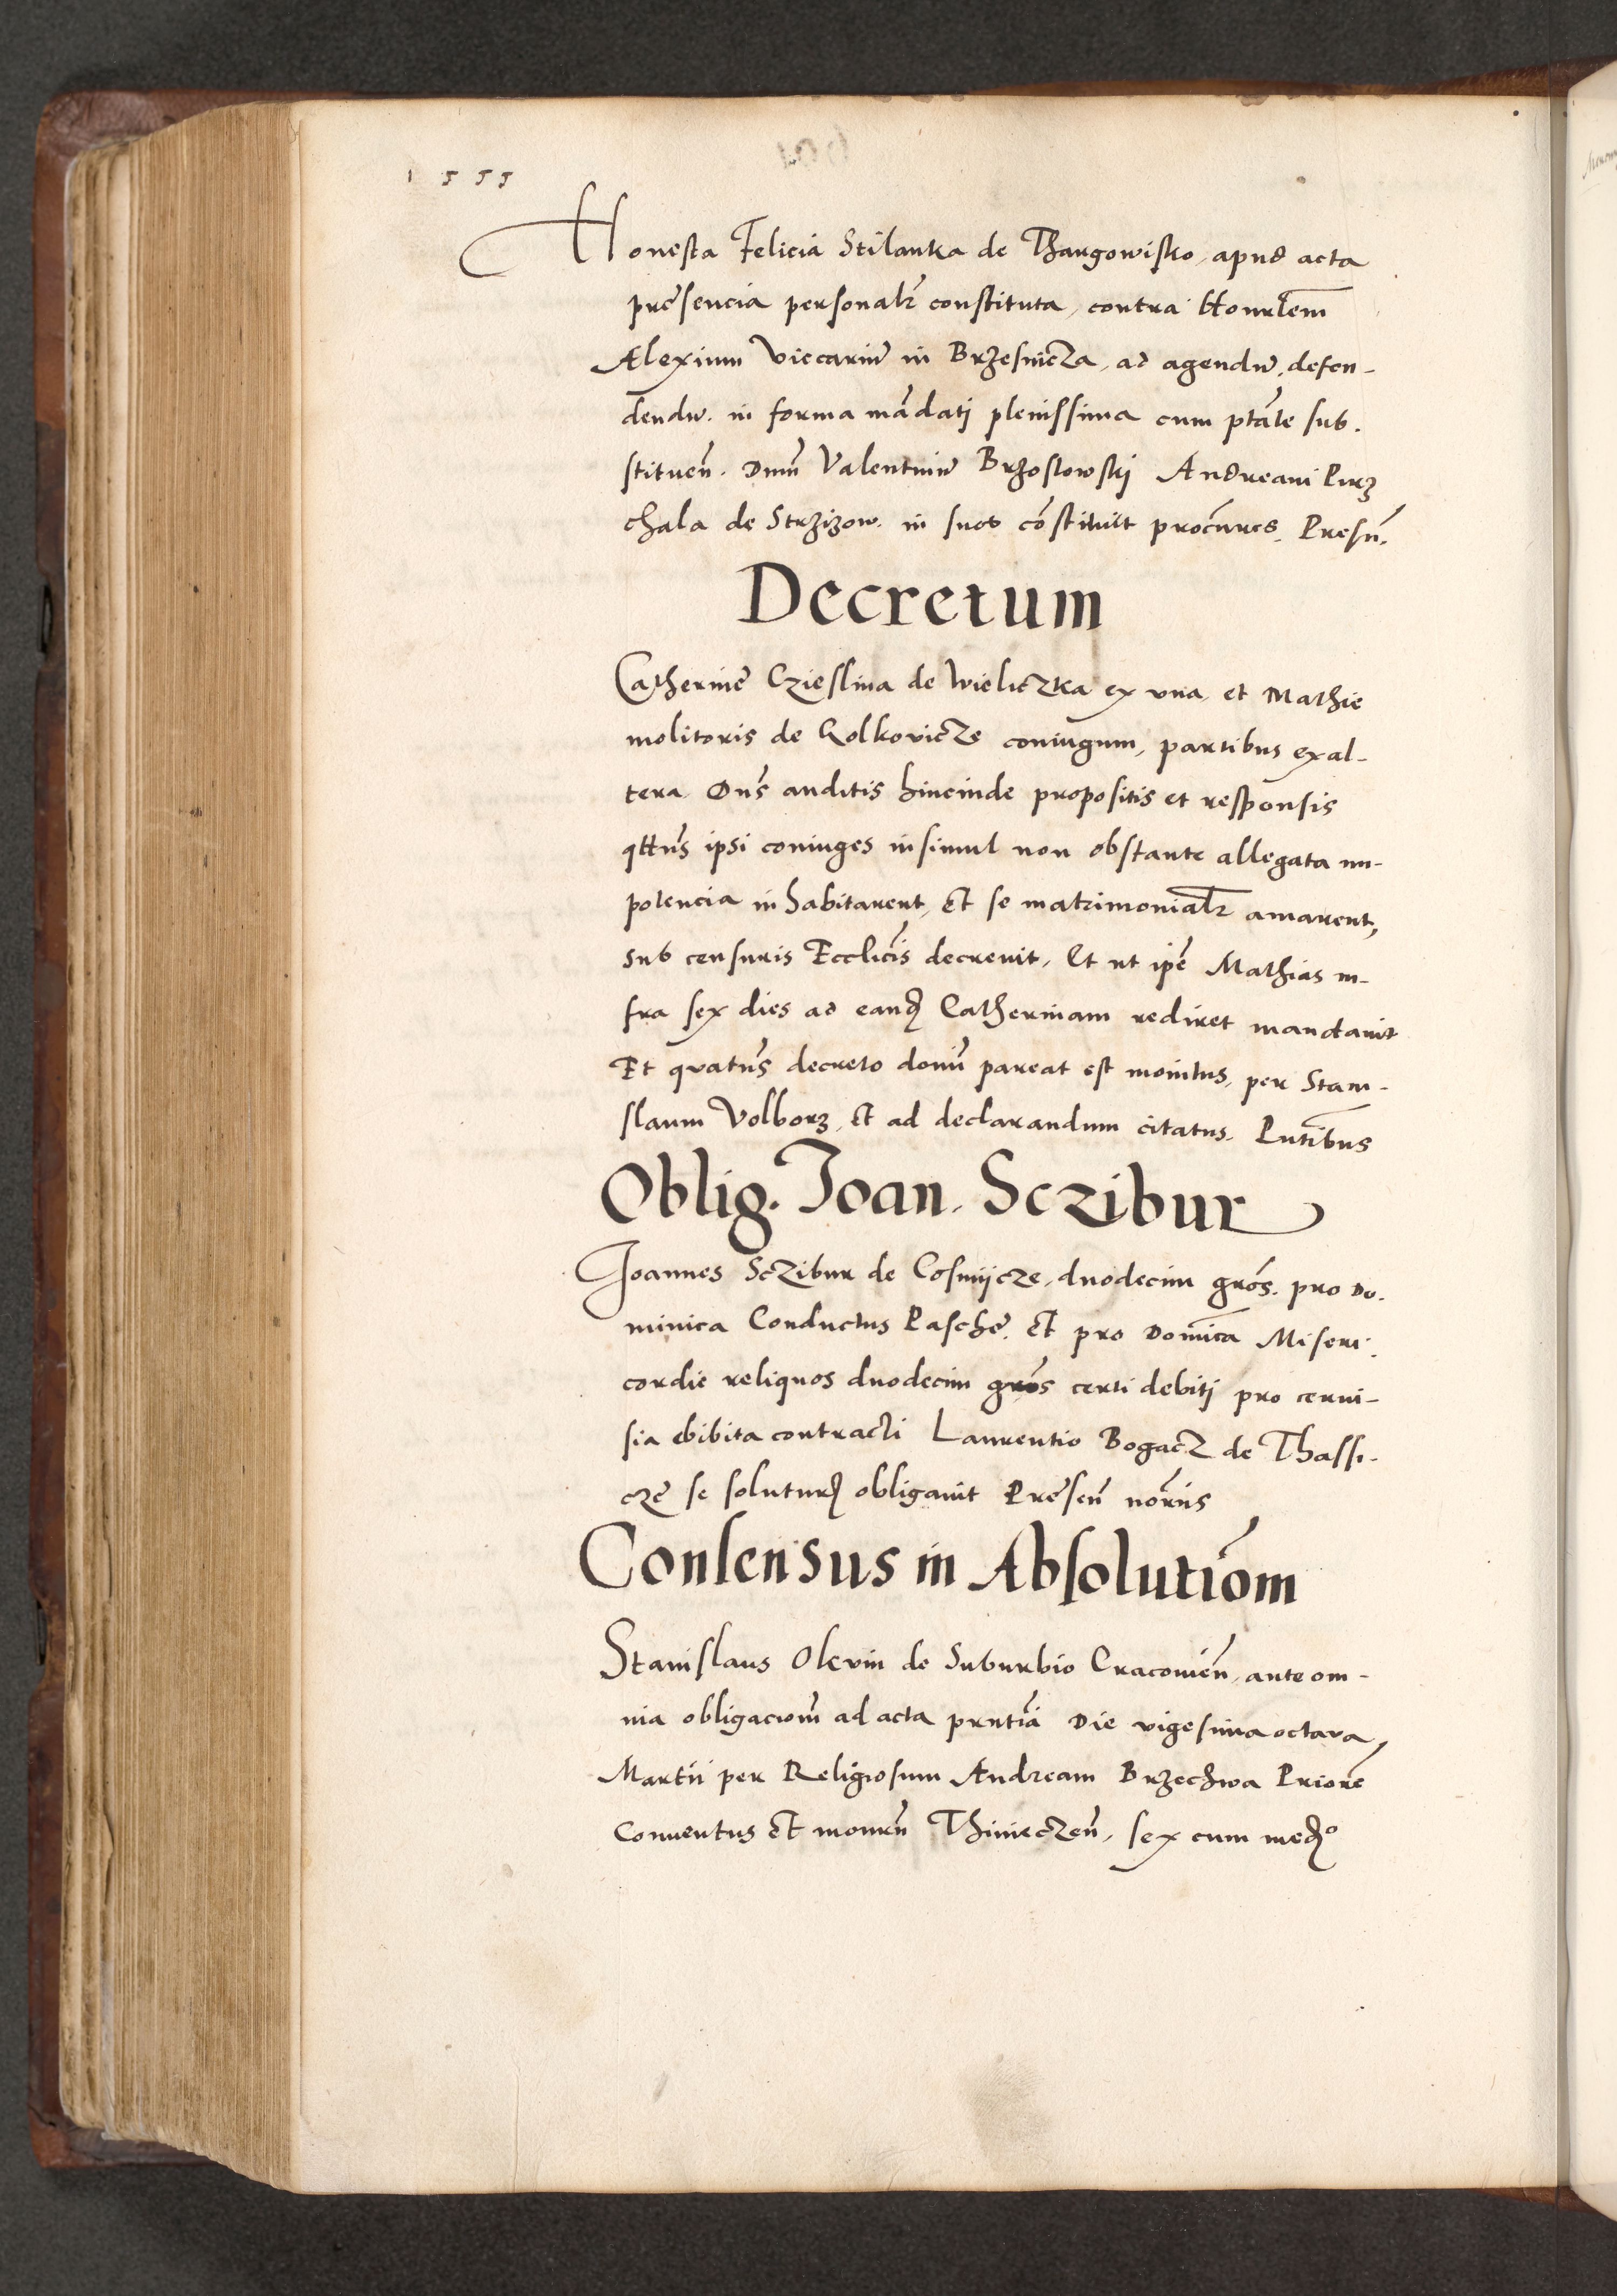 1555
Honesta Felicia Stilanka de Thargowisko, apud acta
presencia personalr constituta, contra Honrlem
Alexium Viccariū in Brzesnicza, ad agendū, defen-
dendū. in forma mādati plenissima cum ptāte sub.
stituen̄. Dnm̄ Valentinū Brzostowskj Andream Purz
chala de Strzizow. in suos cōstituit procūres. Presn̄.
Decretum
Catherine Czieslina de Wieliczka ex vna, et Mathie
molitoris de Golkovicze coniugum, partibus ex al-
tera Dns̄ auditis hincinde propositis et responsis
qttn̄s ipsi coniuges insimul non obstante allegata im-
potencia inhabitarent, et se matrimonialr amarent,
sub censuris Ecclicīs decrevit, Et ut ipē Mathias in-
fra sex dies ad eandꝫ Catherinam rediret mandavit
Et quatn̄s decreto domī pareat est monitus, per Stani-
slaum Volborz, et ad declarandum citatus. Pntībus
Oblig. Joan. Sczibur
Joannes Sczibur de Cosmijcze, duodecim grōs. pro Do.
minica Conductus Pasche. et pro Domīca Miseri.
cordie reliquos duodecim grōs certi debitj pro cervi-
sia ebibita contracti Laurentio Bogacz de Thassi.
cze se soluturꝫ obligavit Presen̄ nōriis
Consensus in Absolutiōm
Stanislaus Olevin de Suburbio Cracovien̄, ante om-
nia obligaciom̄ ad acta prntīa Die vigesima octava
Martii per Religiosum Andream Brzechwa Priorē
Conventus et monrn̄ Thinieczen̄, sex cum medꝫo